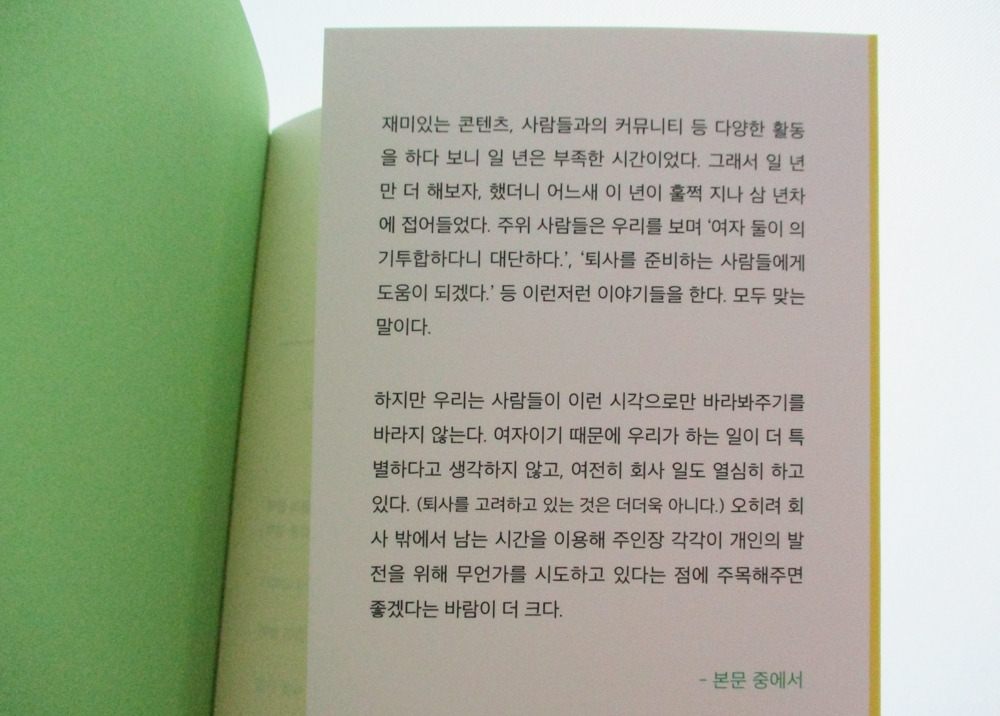 재미있는 콘텐츠, 사람들과의 커뮤니티 등 다양한 활동
을 하다 보니 일 년은 부족한 시간이었다. 그래서 일 년
만 더 해보자, 했더니 어느새 이 년이 훌쩍 지나 삼 년차
에 접어들었다. 주위 사람들은 우리를 보며 ‘여자 둘이 의
기투합하다니 대단하다.’, ‘퇴사를 준비하는 사람들에게
도움이 되겠다.’ 등 이런저런 이야기들을 한다. 모두 맞는
말이다.
하지만 우리는 사람들이 이런 시각으로만 바라봐주기를
바라지 않는다. 여자이기 때문에 우리가 하는 일이 더 특
별하다고 생각하지 않고, 여전히 회사 일도 열심히 하고
있다. (퇴사를 고려하고 있는 것은 더더욱 아니다.) 오히려 회
사 밖에서 남는 시간을 이용해 주인장 각각이 개인의 발
전을 위해 무언가를 시도하고 있다는 점에 주목해주면
좋겠다는 바람이 더 크다.
- 본문 중에서